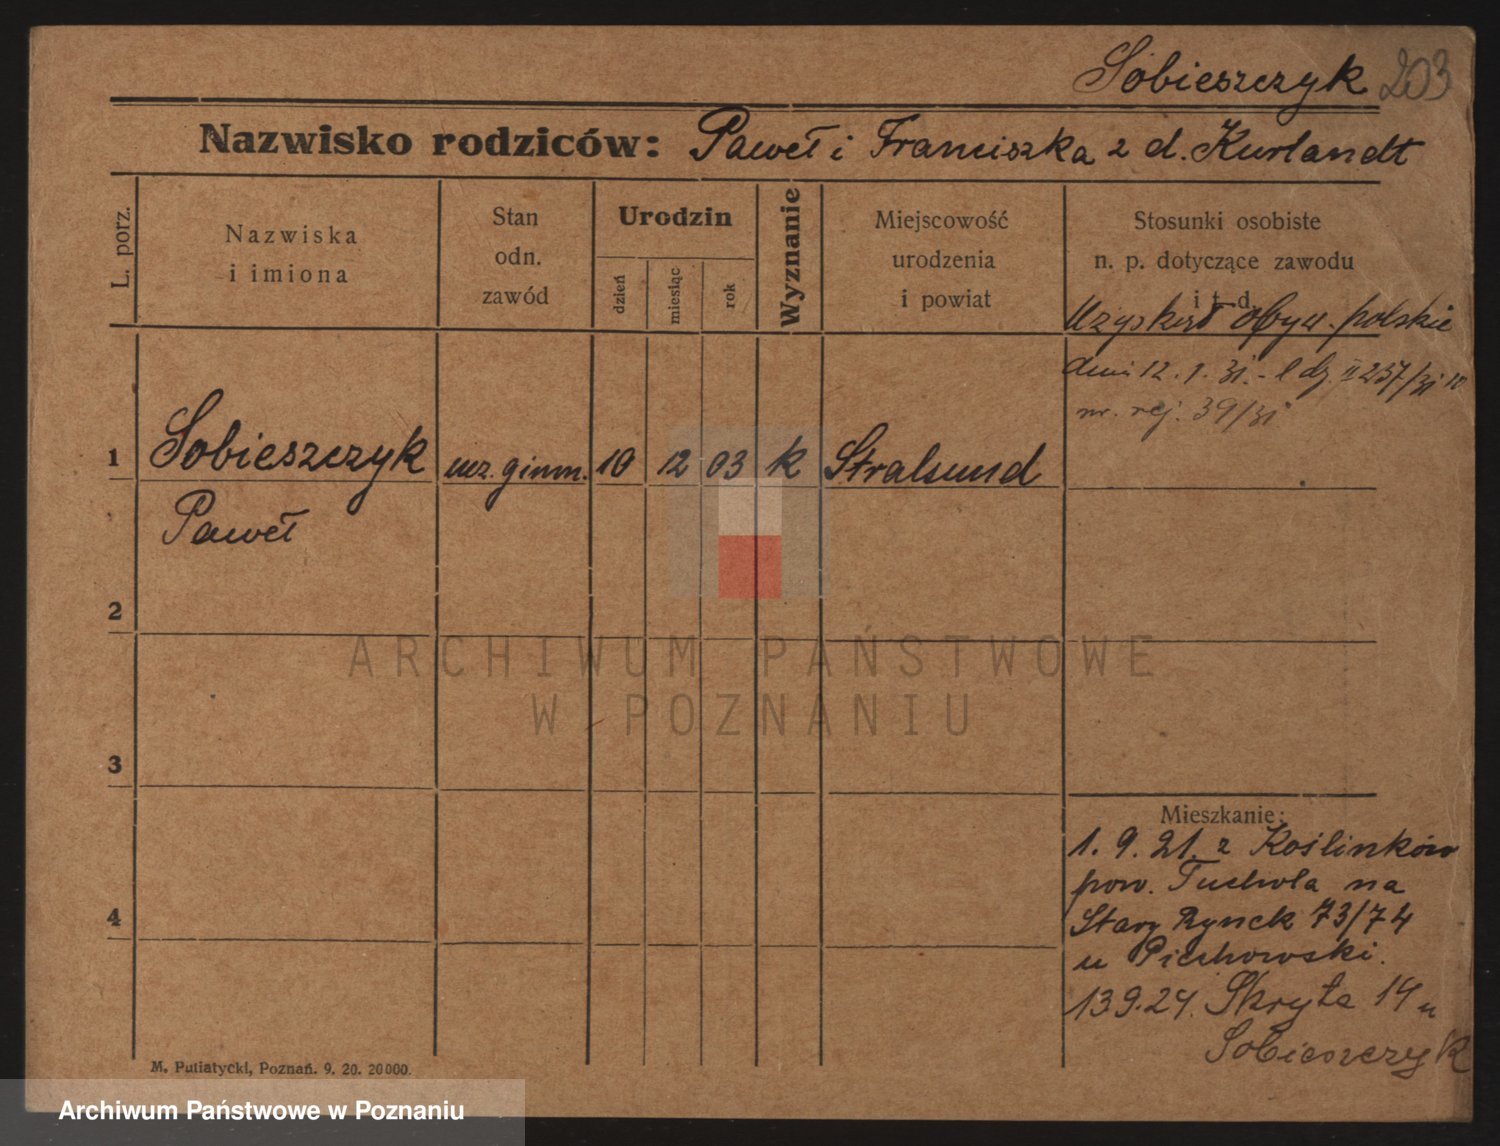 Sobieszczyk 203
Nazwisko rodziców: Paweł i Franciszka z d. Kurlandt
L. porz.
Nazwiska
i imiona
Stan
odn.
zawód
Urodzin
dzień
miesiąc
rok
Wyznanie
Miejscowość
urodzenia
i powiat
Stosunki osobiste
n. p. dotyczące zawodu
i t. d.
Uzyskał obyw. polskie
dnia 12.1.31. - l dz. II 237/31
nr. rej. 39/31
1 Sobieszczyk ucz. gimn. 10 12 03 k Stralsund
Paweł
2
3
4
ARCHIWUM PAŃSTWOWE
W POZNANIU
Mieszkanie:
1.9.21. z Koślinków
pow. Tuchola na
Stary Rynek 73/74
u Piechowski.
13.9.24. Skryta 14 u
Sobieszczyk
M. Putiatycki, Poznań. 9. 20. 20000.
Archiwum Państwowe w Poznaniu